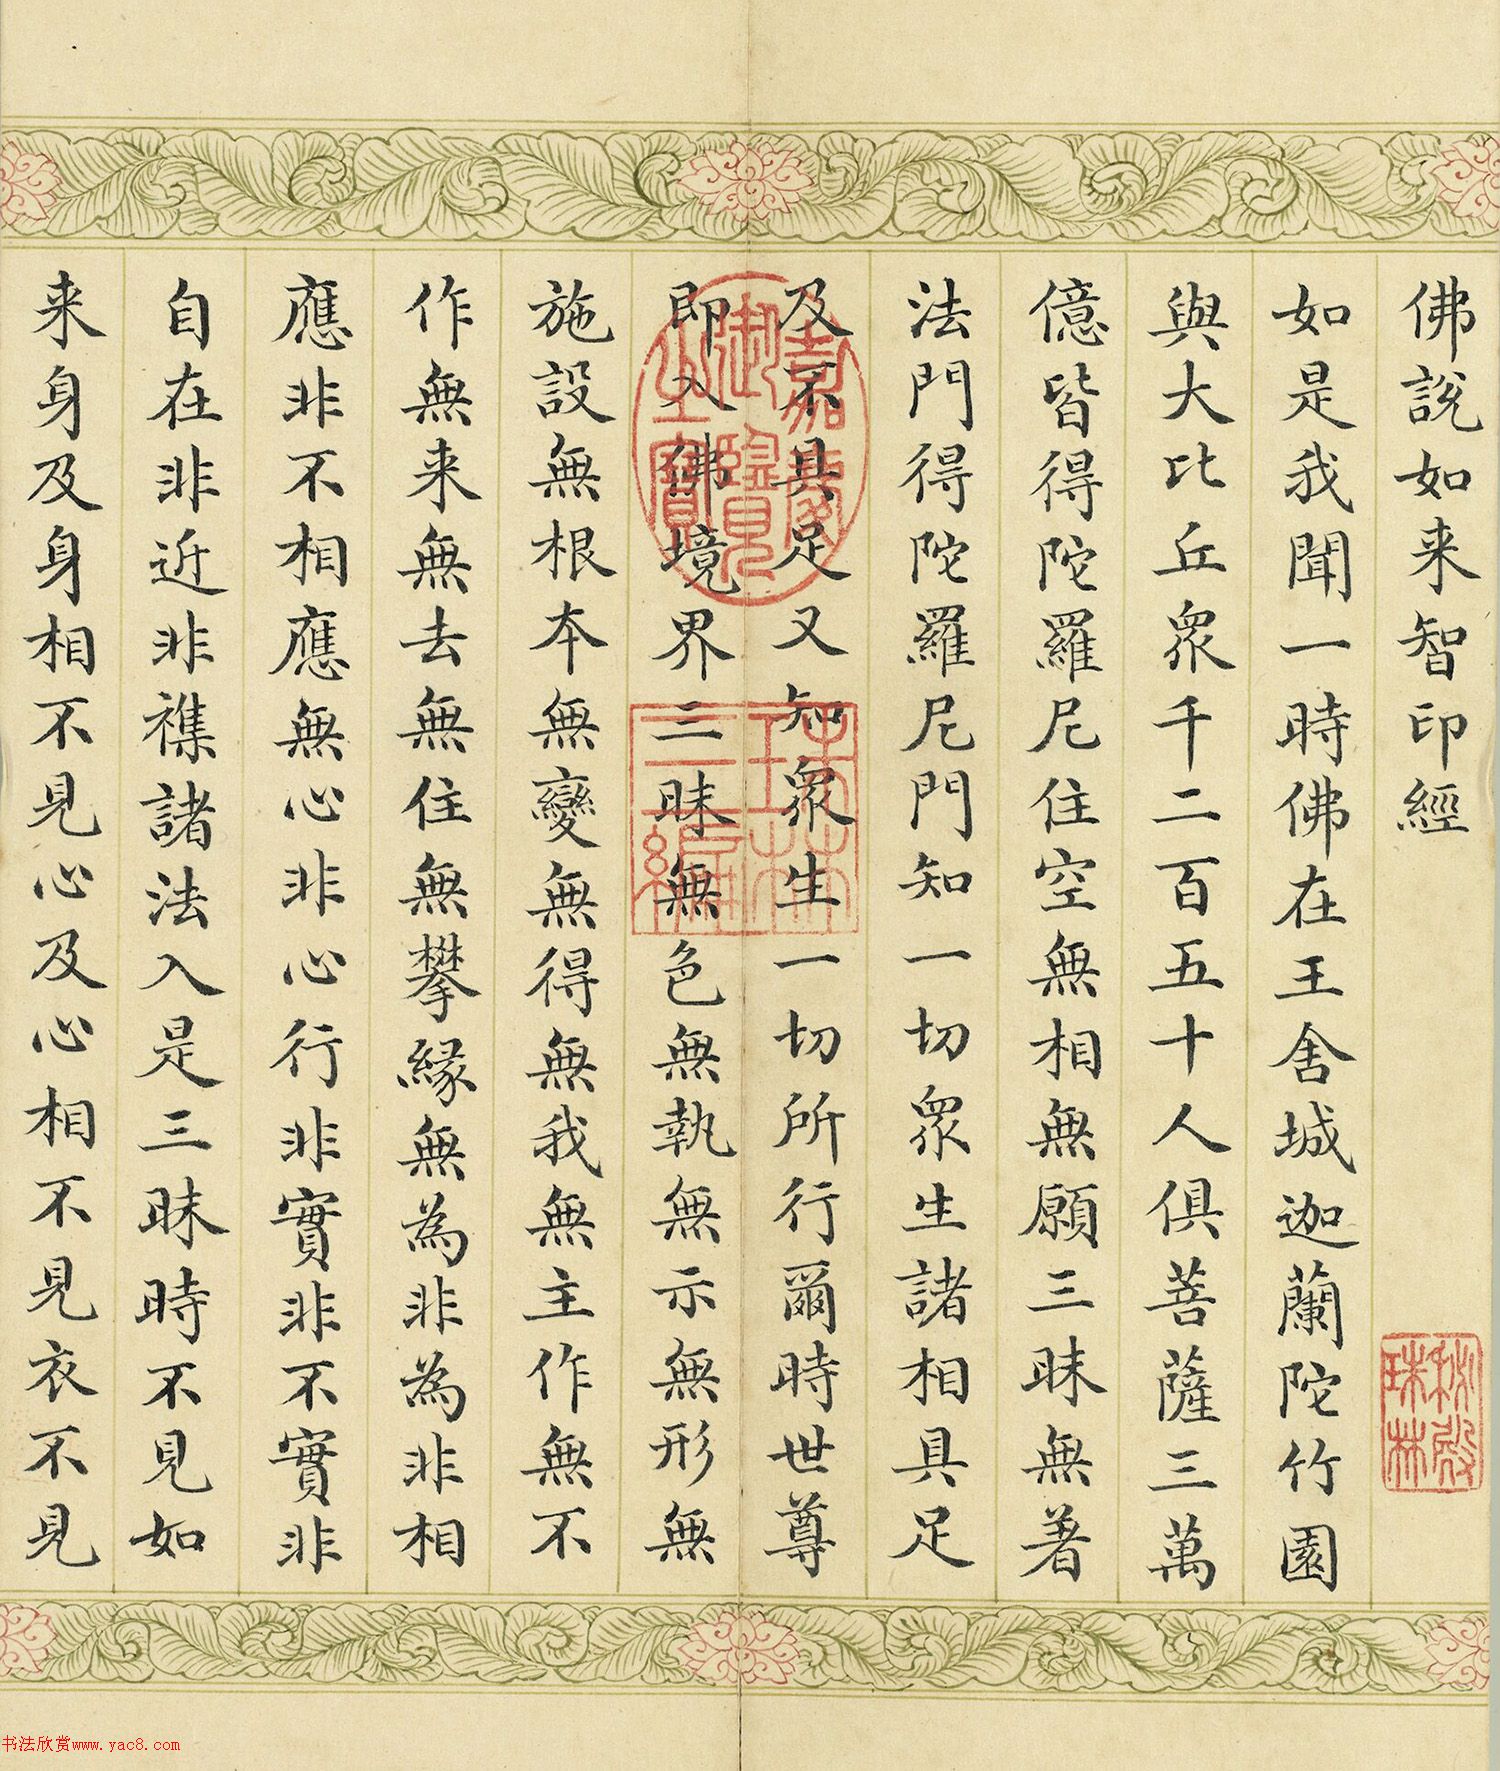 佛說如来智印經
如是我聞一時佛在王舍城迦蘭陀竹園
與大比丘眾千二百五十人俱菩薩三萬
億皆得陀羅尼住空無相無願三昧無著
法門得陀羅尼門知一切眾生諸相具足
及不具足又知眾生一切所行爾時世尊
即入佛境界三昧無色無執無示無形無
施設無根本無變無得無我無主作無不
作無来無去無住無攀緣無為非為非相
應非不相應無心非心行非實非不實非
自在非近非襍諸法入是三昧時不見如
来身及身相不見心及心相不見衣不見
嘉慶御覽之寶
三希堂
秘殿珠林
书法欣赏www.yac8.com